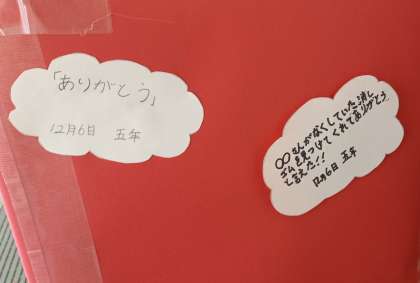 「ありがとう」
12月6日 五年
〇〇さんがなくしていた消し
ゴムを見つけてくれてありがとう
と言えた!!
12月6日 五年